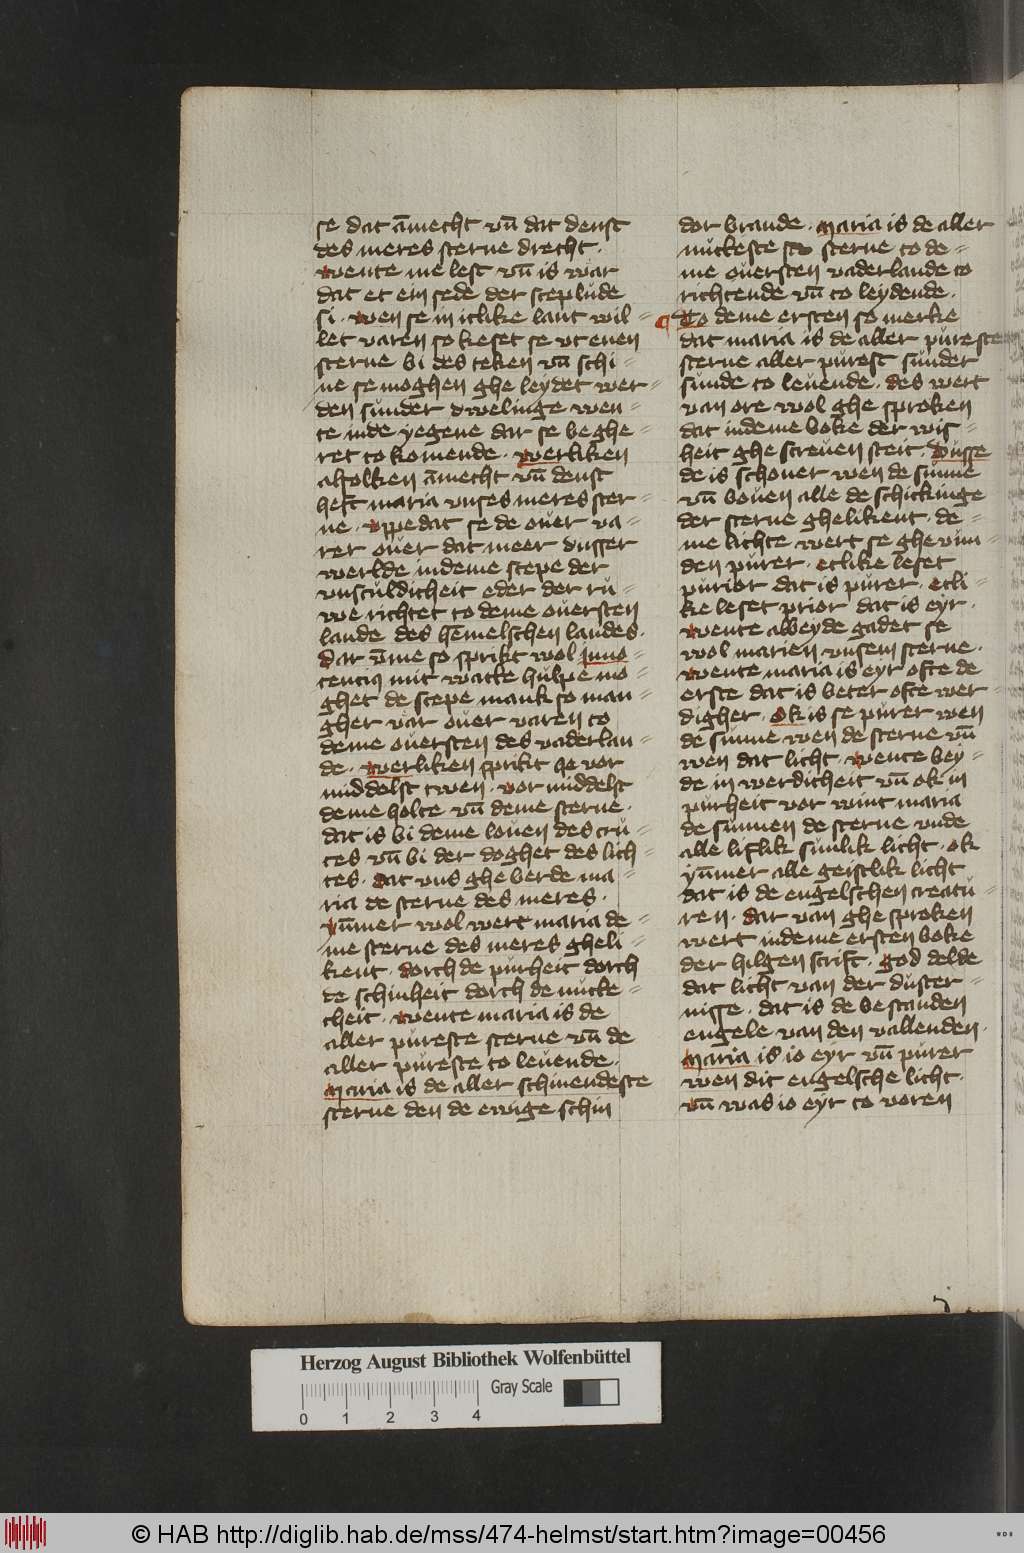 se dat āmecht vn̄ dat denst
des meres sterne drecht ·
wente me lest vn̄ is war
dat et ein sede der sceplude
si · wen se in itlike lant wil=
let varen so keset se vt enen
sterne bi des teken vn̄ schi=
ne se moghen ghe leydet wer=
den sunder dwelinge wen=
te inde yegene dar se beghe=
ret to komende · werliken
alsolken āmecht vn̄ denst
heft maria vnses meres ster=
ne · vppe dat se de ouer va=
rer ouer dat meer dusser
werlde indeme scepe der
vnsculdicheit eder der ru=
we richtet to deme ouersten
lande des hemelschen landes ·
dar v̄me so sprikt wol jnno=
cencius mit watte hulpe mo=
ghet de scepe mank so man=
gher var ouer varen to
deme ouersten des vaderlan=
de · werliken sprikt he vor
middelst twen · vor middelst
deme holte vn̄ deme sterne ·
dat is bi deme louen des cru=
ces vn̄ bi der doghet des lich=
tes · dat vns ghe berde ma=
ria de sterne des meres ·
ym̄mer wol wert maria de=
me sterne des meres gheli=
kent · dorch de purheit dorch
de schinheit dorch de nutte=
cheit · wente maria is de
aller pureste sterne vn̄ de
aller pureste to leuende ·
Maria is de aller schinendeste
sterne den de ewige schin
dor brande · Maria is de aller
nutteste sterne to de=
me ouersten vaderlande to
richtende vn̄ to leydende ·
¶ To deme ersten so merke
dat maria is de aller pureste
sterne aller purest sunder
sunde to leuende · des wert
van ore wol ghe sproken
dat indeme boke der wis=
heit ghe screuen steit · Dusse
de is schoner wen de sunne
vn̄ bouen alle de schickinge
der sterne ghelikent · de=
me lichte wert se ghe vun=
den purer · etlike leset
purior dat is purer · etli=
ke leset prior dat is eyr ·
wente albeyde gadet se
wol marien vnsem sterne ·
wente maria is eyr ofte de
erste dat is beter ofte wer=
digher · Ok is se purer wen
de sunne wen de sterne vn̄
wen dat licht · wente bey=
de in werdicheit vn̄ ok in
purheit vor wint maria
de sunnen de sterne vnde
alle liflik sunlik licht · ok
ym̄mer alle geistlik licht
dat is de engelschen creatu=
ren · dar van ghe sproken
wert indeme ersten boke
der hilgen scrift · god delde
dat licht van der duster=
nisse · dat is de bestanden
engele van den vallenden ·
Maria is io eyr vn̄ purer
wen dit engelsche licht ·
vn̄ was io eyr to voren
Herzog August Bibliothek Wolfenbüttel
Gray Scale
0 1 2 3 4
© HAB http://diglib.hab.de/mss/474-helmst/start.htm?image=00456